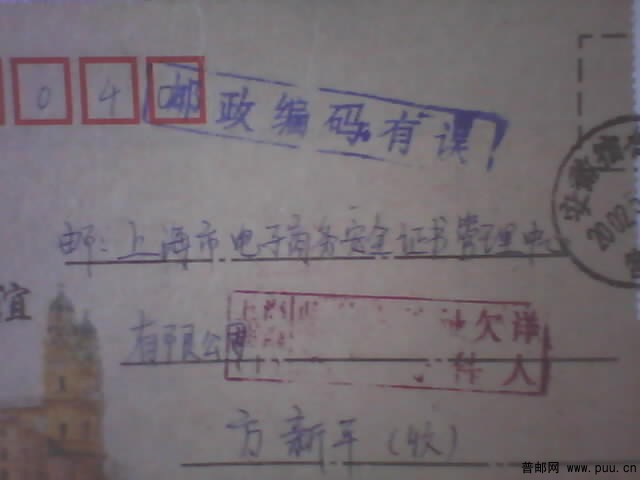 0 4 0
邮政编码有误
安徽宿
邮:上海市电子商务安全证书管理中心
谊
有限公司
欠详
件人
方新平(收)
普邮网 www.puu.cn